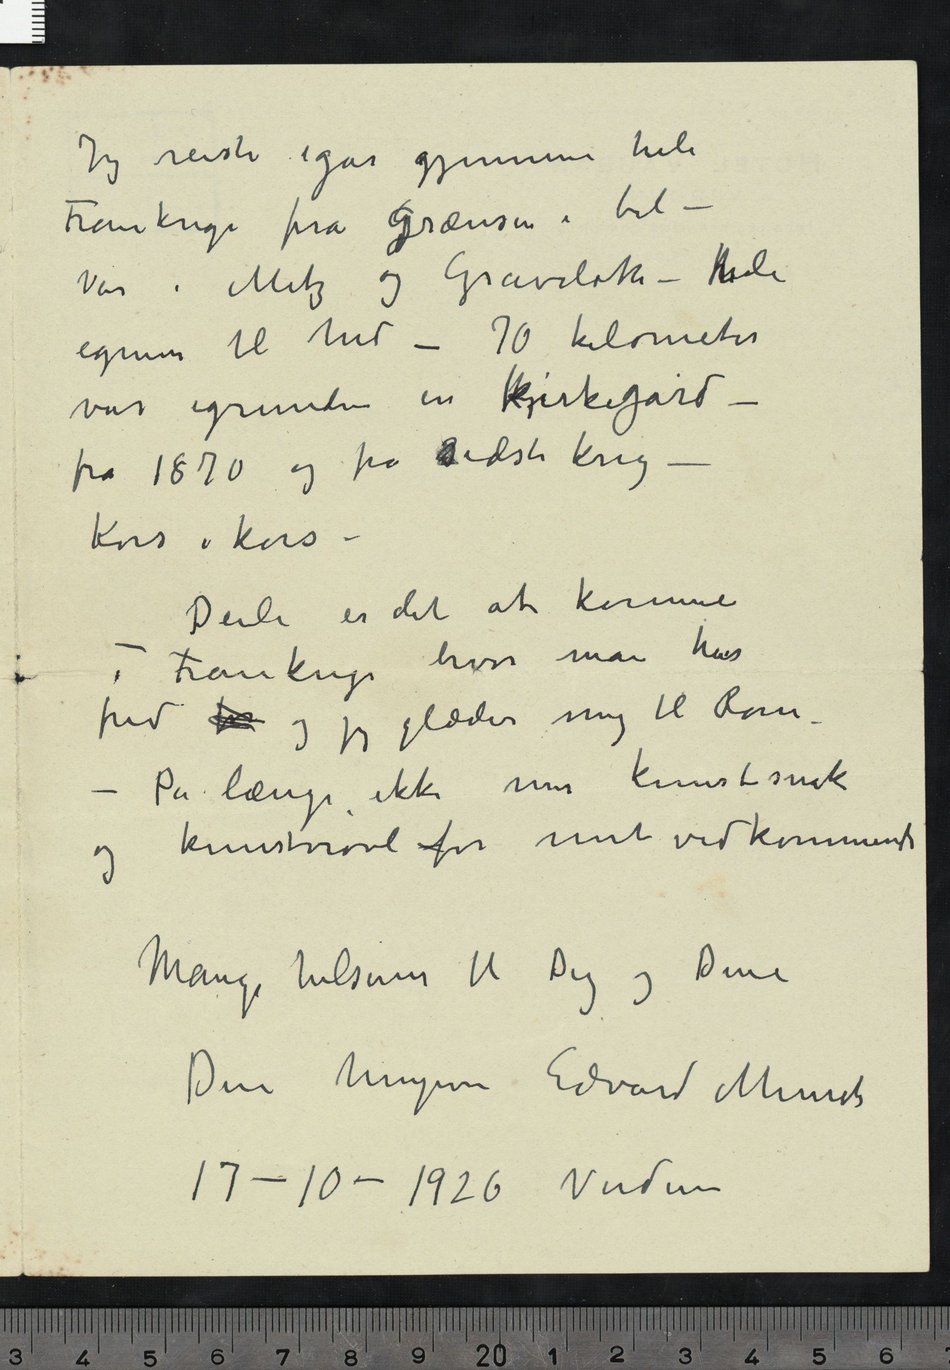 Jeg reiste igår gjennem hele
Frankrige fra Grænsen i bil –
var i Metz og Gravelotte – Hele
egnen til hid – 70 kilometer
var igrunden en Kirkegård –
fra 1870 og fra sidste krig –
Kors i kors –
Deili er det at komme
i Frankrige hvor man har
fred og jeg glæder mig til Rom –
– På længe ikke mer kunstsnak
og kunstvrøvl for mit vedkommende
Mange hilsener til Dig og Dine
Din hengivne Edvard Munch
17–10–1926 Verdun
3 4 5 6 7 8 9 20 1 2 3 4 5 6